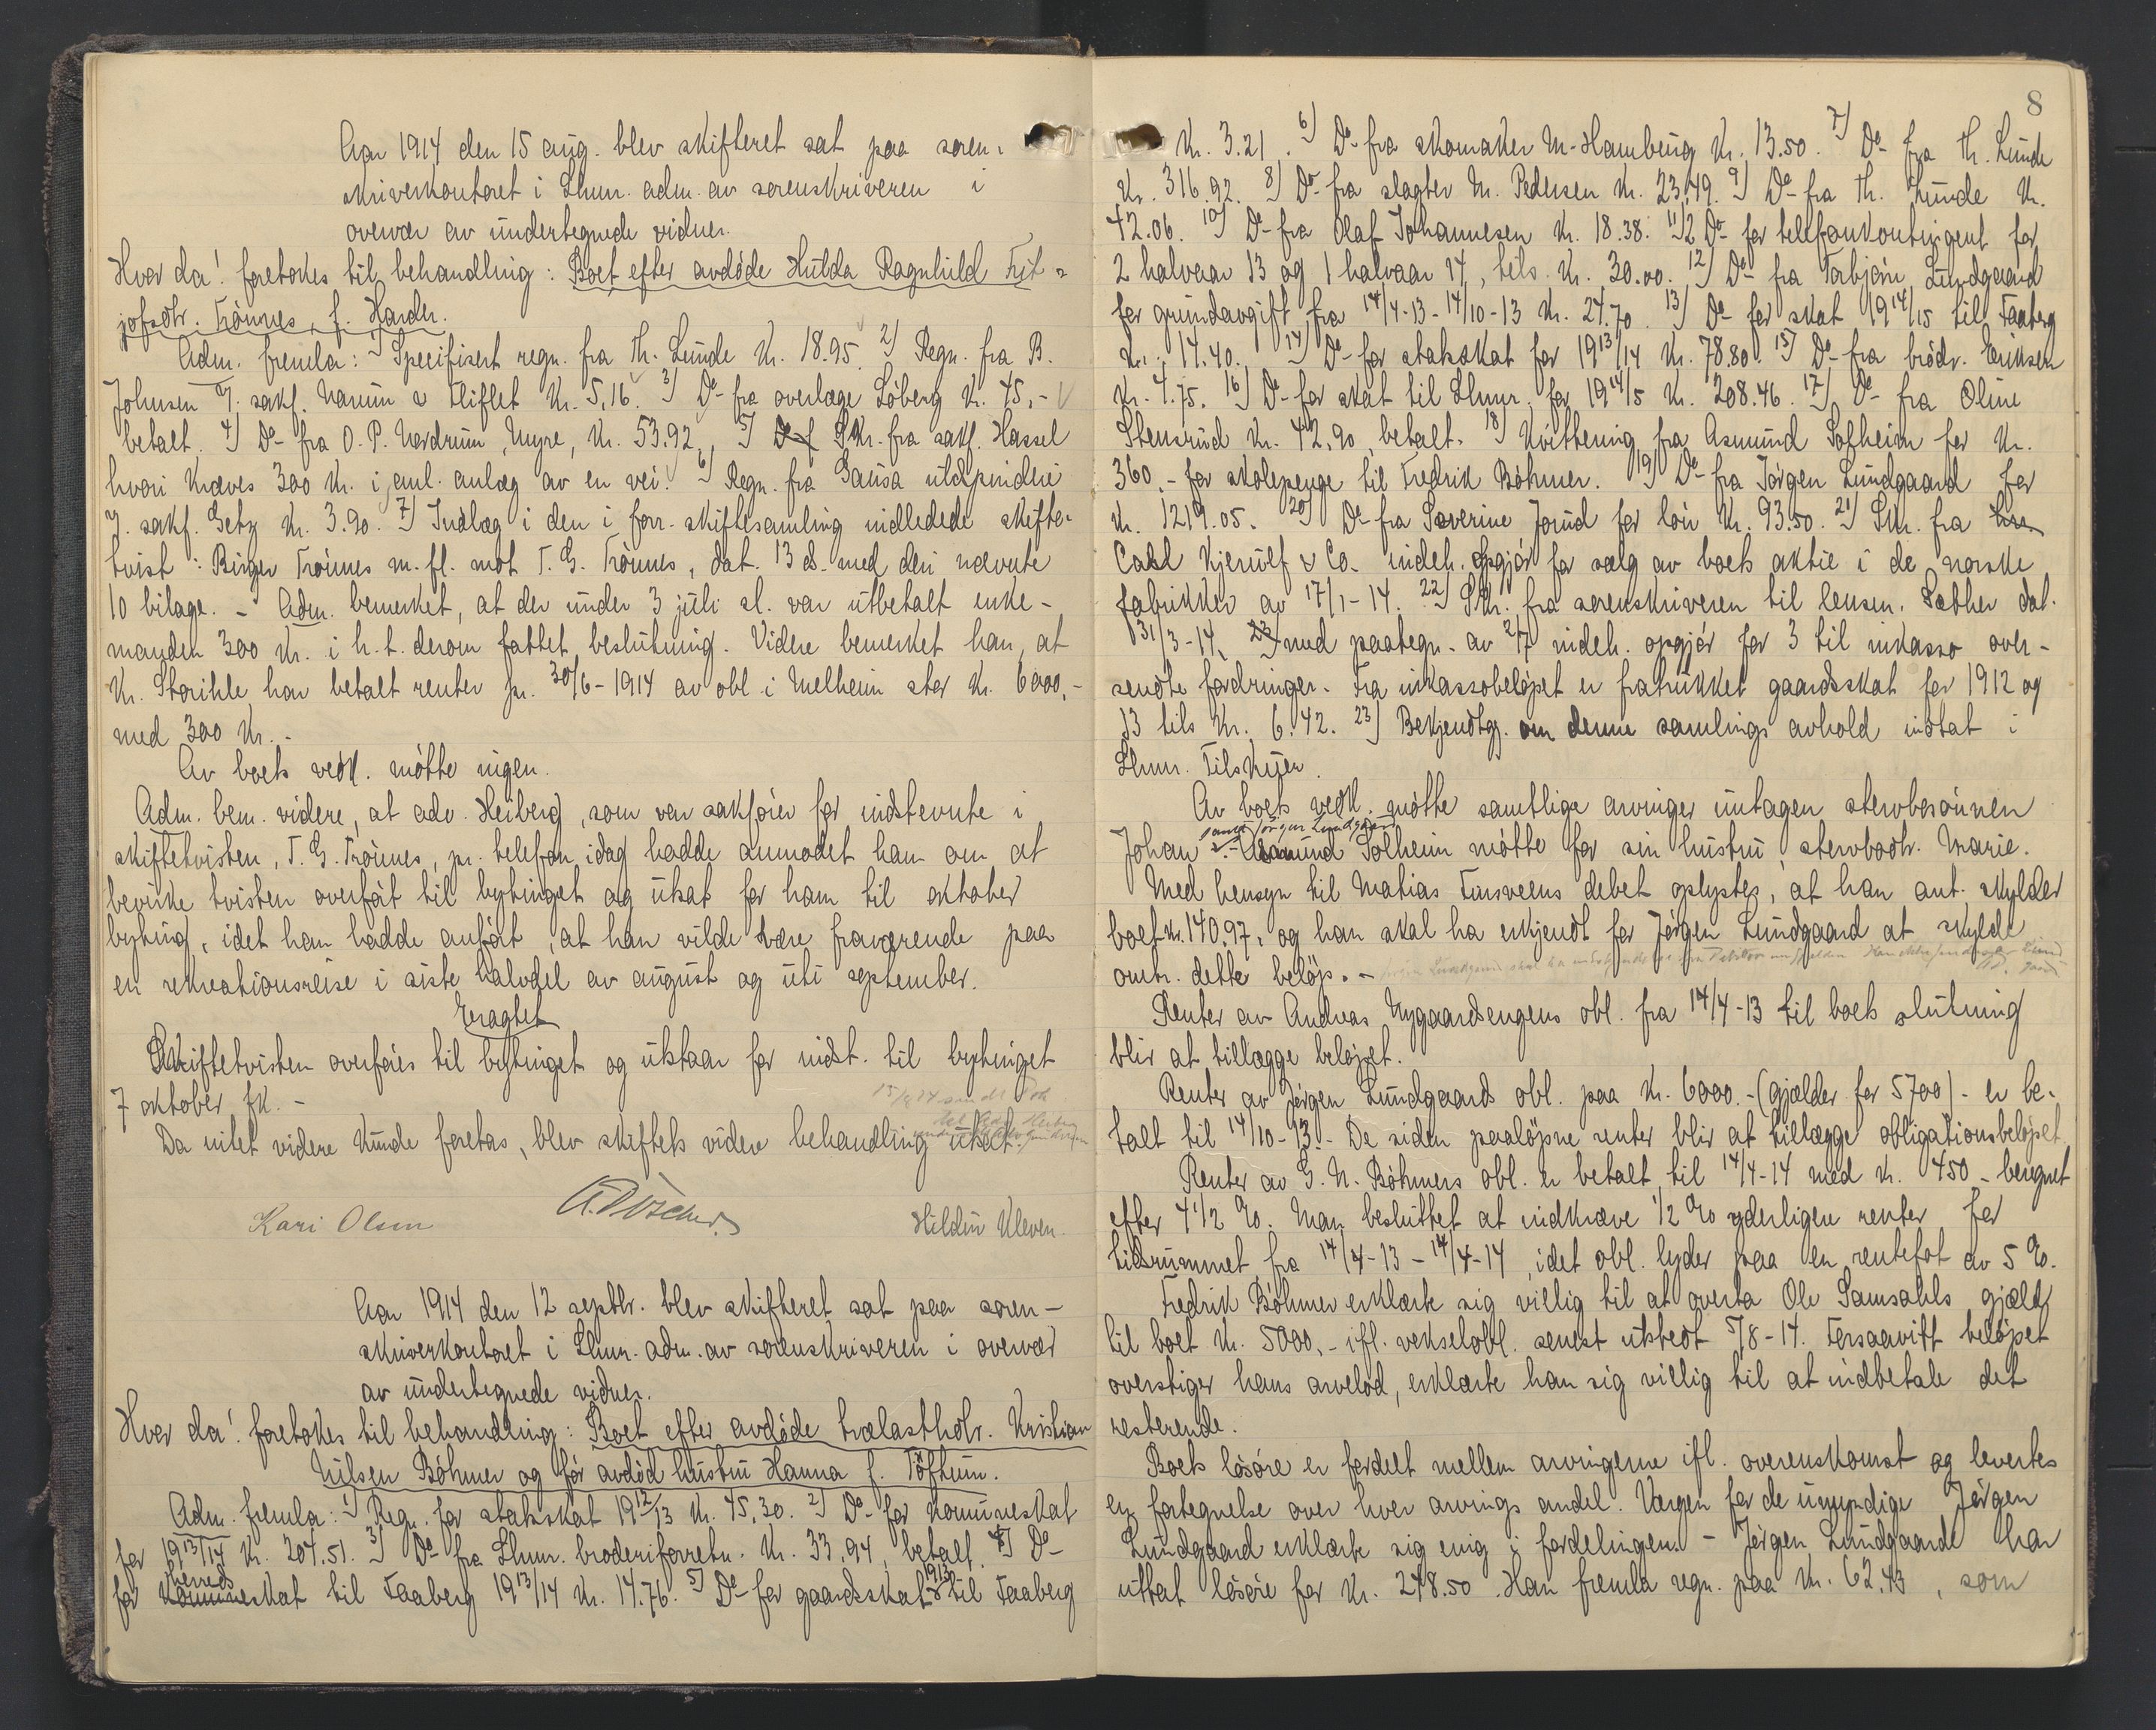 Aar 1914 den 15 aug. blev skifteret sat paa soren-
skriverkontoret i Lhmr. adm. av sorenskriveren i
overvær av undertegnede vidner.
Hvor da! foretokes til behandling: Boet efter avdöde Hulda Ragnhild Frit-
jofsdtr. Trönnes, f. Harder.
Adm. fremla: 1) Specifisert regn. fra Th. Lunde Kr. 18.95. 2) Regn. fra B.
Johnsen sakf. Narum & Fliflet Kr. 5,16. 3) Do- fra overlæge Löberg Kr. 45,-
betalt. 4) Do- fra O. P. Nordrum, Myre, Kr. 53.92, 5) Do f Skr. fra sakf. Hassel
hvori kræves 300 Kr. i anl. anlæg av en vei. 6) Regn. fra Gausa uldspinderi
v. sakf. Getz Kr. 3.90. 7) Indlæg i den i forr. skiftesamling indledede skifte-
tvist: Birger Trönnes m. fl. mot T. G. Trönnes, dat. 13 ds. med deri nævnte
10 bilage. - Adm. bemerket, at der under 3 juli sl. var utbetalt enke-
manden 300 Kr. i h. t. derom fattet beslutning. Videre bemerket han, at
Kr. Storihle har betalt renter pr. 30/6-1914 av obl. i Melheim stor Kr. 6000,-
med 300 Kr. -
Av boets vedk. mötte ingen.
Adm. bem. videre, at adv. Heiberg, som var sakförer for indstevnte i
skiftetvisten, T. G. Trönnes, pr. telefon idag hadde anmodet ham om at
bevirke tvisten overfört til bytinget og utsat for ham til oktober
byting, idet han hadde anfört, at han vilde være fraværende paa
en rekreationsreise i siste halvdel av august og uti september.
Eragtet
Skiftetvisten overföres til bytinget og utstaar for indst. til bytinget
7 oktober fk. -
15/8 14 sendt
Da intet videre kunde foretas, blev skiftets videre behandling utsat.
Kari Olsen Hildur Kleven.
Aar 1914 den 12 septbr. blev skifteret sat paa soren-
skriverkontoret i Lhmr. adm. av sorenskriveren i overvær
av undertegnede vidner.
Hvor da! foretokes til behandling: Boet efter avdöde trælasthdlr. Kristian
Nilsen Böhmer og för avdöd hustru Hanna f. Töftum.
Adm. fremla: 1) Regn. for statsskat 1912/13 Kr. 45,30. 2) Do- for kommuneskat
for 1913/14 Kr. 204.51. 3) Do- fra Lhmr. broderiforretn. Kr. 33,94, betalt. 4) Do-
for kommuneskat herreds til Faaberg 1913/14 Kr. 14.76. 5) Do- for gaardsskat 1913 til Faaberg
8
Kr. 3.21. 6) Do- fra skomaker M. Hamburg Kr. 13.50. 7) Do- fra Th. Lunde
Kr. 316.92. 8) Do- fra slagter M. Pedersen Kr. 23.49. 9) Do- fra Th. Lunde Kr.
42.06. 10) Do- fra Olaf Johannesen Kr. 18.38. 11) 2 Do- for telefonkontingent for
2 halvaar 13 og 1 halvaar 14, tils. Kr. 30.00. 12) Do- fra Torbjörn Lundgaard
for grundavgift fra 14/4-13 - 14/10-13 Kr. 24.70. 13) Do- for skat 1914/15 til Faaberg
Kr. 14.40. 14) Do- for statsskat for 1913/14 Kr. 78.80. 15) Do- fra brödr. Eriksen
Kr. 4.75. 16) Do- for skat til Lhmr. for 1914/5 Kr. 208.46. 17) Do- fra Oline
Stensrud Kr. 42.90, betalt. 18) Kvittering fra Asmund Solheim for Kr.
360.- for skolepenge til Fredrik Böhmer. 19) Do- fra Jörgen Lundgaard for
Kr. 1219.05. 20) Do- fra Severine Jorud for lön Kr. 93.50. 21) Skr. fra
Carl Kjerulf & Co. indeh. opgjör for salg av boets aktie i de norske
fabrikker av 17/1-14. 22) Skr. fra sorenskriveren til lensm. Sæther dat.
31/3-14, 23) med paategn. av 2/7 indeh. opgjör for 3 til inkasso over-
sendte fordringer. Fra inkassobelöpet er fratrukket gaardsskat for 1912 og
13 tils Kr. 6.42. 23) Bekjendtgj. om denne samlings avhold indtat i
Lhmr. Tilskuer.
Av boets vedk. mötte samtlige arvinger untagen stervbosönnen
Johan samt Jörgen Lundgaard Asmund Solheim mötte for sin hustru, stervbodtr. Marie.
Med hensyn til Matias Fursveens debet oplystes, at han ant. skylder
boet Kr. 140.97, og han skal ha erkjendt for Jörgen Lundgaard at skylde
omtr. dette belöp. -
Renter av Andreas Nygaardsengens obl. fra 14/4-13 til boets slutning
blir at tillægge belöpet.
Renter av Jörgen Lundgaards obl. paa Kr. 6000.- (gjælder for 5700) - er be-
talt til 14/10-13. - De siden paalöpne renter blir at tillægge obligationsbelöpet.
Renter av G. N. Böhmers obl. er betalt til 14/4-14 med Kr. 450 - beregnet
efter 4 1/2 %. Man besluttet at indkræve 1/2 % yderligere renter for
tidsrummet fra 14/4-13 - 14/4-14, idet obl. lyder paa en rentefot av 5 %.
Fredrik Böhmer erklærte sig villig til at overta Ole Samsahls gjæld
til boet Kr. 5000.- ifl. vekselobl. senest utstedt 5/8-14. Forsaavitt belöpet
overstiger hans arvelod, erklærte han sig villig til at indbetale det
resterende.
Boets lösöre er fordelt mellem arvingerne ifl. overenskomst og levertes
en fortegnelse over hver arvings andel. Værgen for de umyndige Jörgen
Lundgaard erklærte sig enig i fordelingen. - Jörgen Lundgaard har
uttat lösöre for Kr. 248.50. Han fremla regn. paa Kr. 62.43, som